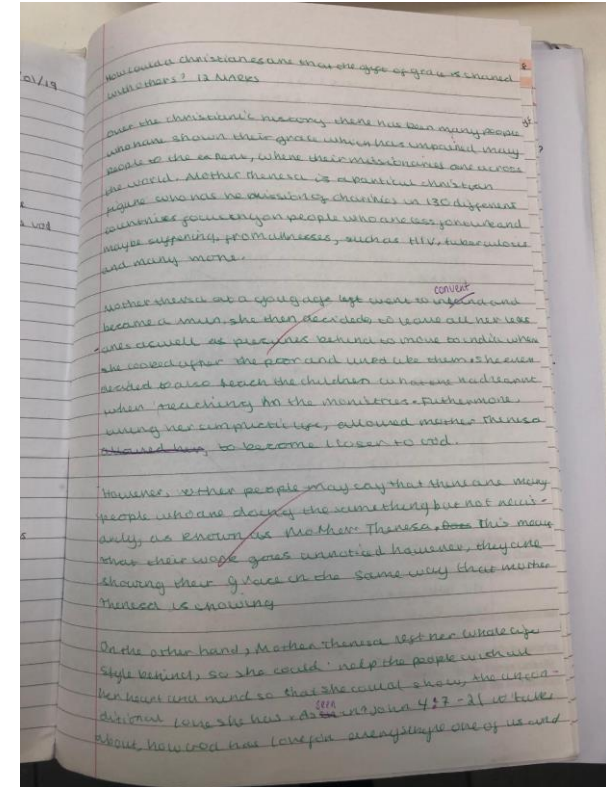 01/19
How could a christian esane that the gift of grace is shared
with others? 12 Marks
over the christianic history there has been many people
who have shown their grace which has impaired many
people to the extens, where their missionaries are across
the world. Mother Theresa is a christian
figure who has he mission of charities in 130 different
countries focusing on people who are less and
maybe suffering, from illnesses, such as HIV, tuberculosis
and many more.
convent
Mother theresa at a young age left went to and
became a nun, she then decided, to leave all her
as well as behind to move to india where
she looked after the poor and lived like them. she even
decided to also teach the children what she had learnt
when teaching in the monistries. Futhermore,
living her simplictic life, allowed mother Theresa
allowed her, to become closer to God.
However, other people may say that there are many
people who are doing the same thing but not
as known as Mother Theresa. This may
that their work goes unnoticed however, they are
showing their grace in the same way that mother
Theresa is showing
On the other hand, Mother theresa left her whole life
style behind, so she could help the people with all
her heart and mind so that she could show, the uncon-
ditional love she has. As
seen
in 1 John 4:7-21 it talks
about, how God has love for every single one of us and